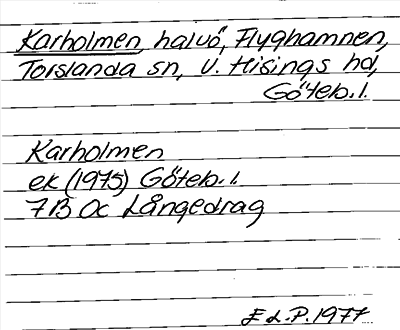 Karholmen, halvö, Flyghamnen,
Torslanda sn, V. Hisings hd,
Göteb. l.
Karholmen
ek (1975) Göteb. l.
7B 0c Långedrag
E L.P. 1977